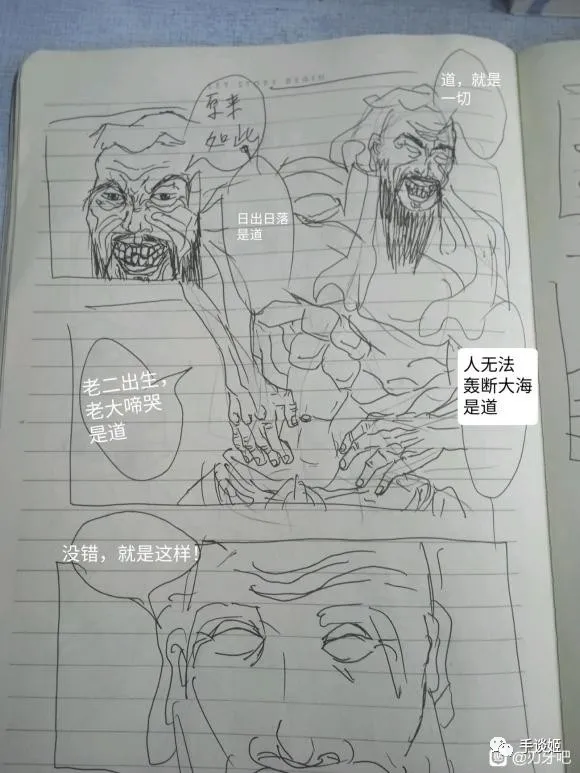 道，就是
一切
原来
如此
日出日落
是道
人无法
轰断大海
是道
老二出生，
老大啼哭
是道
没错，就是这样！
手谈姬
@刃牙吧